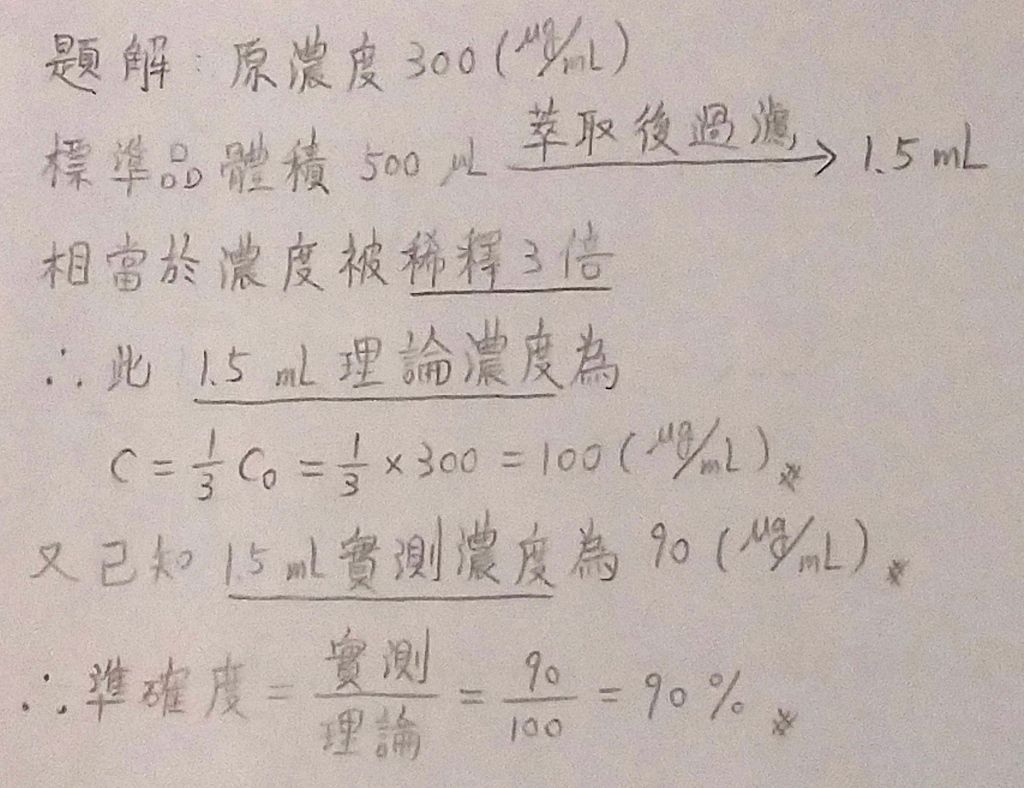 題解：原濃度 300 (μg/mL)
標準品體積 500 μL 萃取後過濾→ 1.5 mL
相當於濃度被稀釋3倍
∴此 1.5 mL 理論濃度為
C = 1/3 C₀ = 1/3 × 300 = 100 (μg/mL)※
又已知 1.5 mL 實測濃度為 90 (μg/mL)※
∴準確度 = 實測/理論 = 90/100 = 90 %※